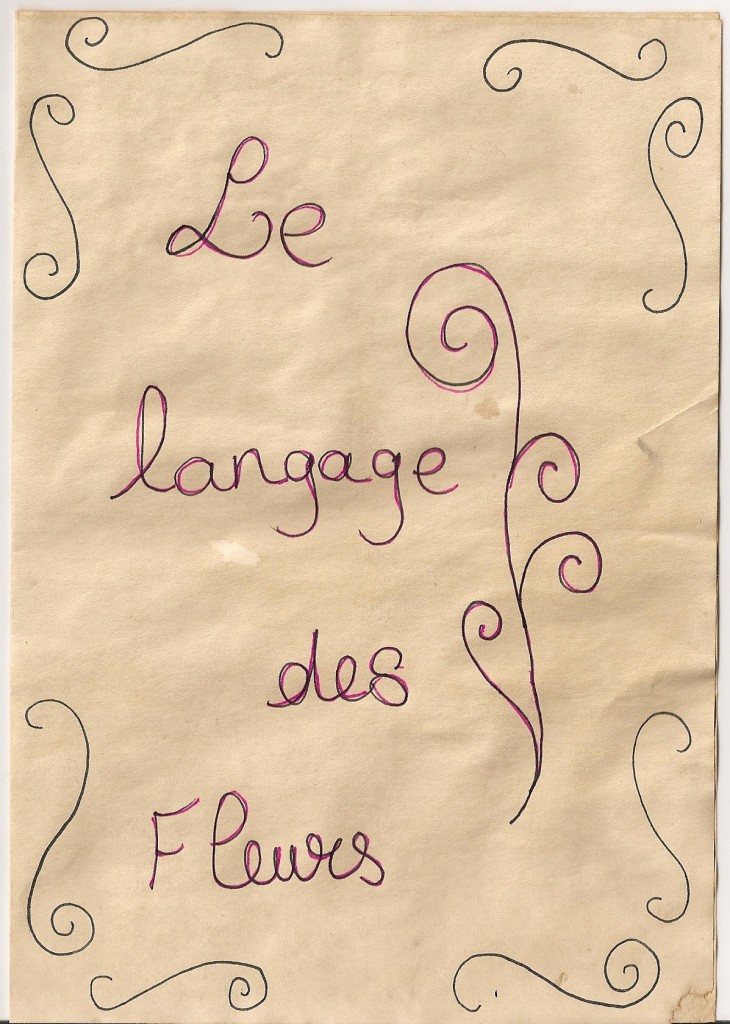 Le
langage
des
Fleurs